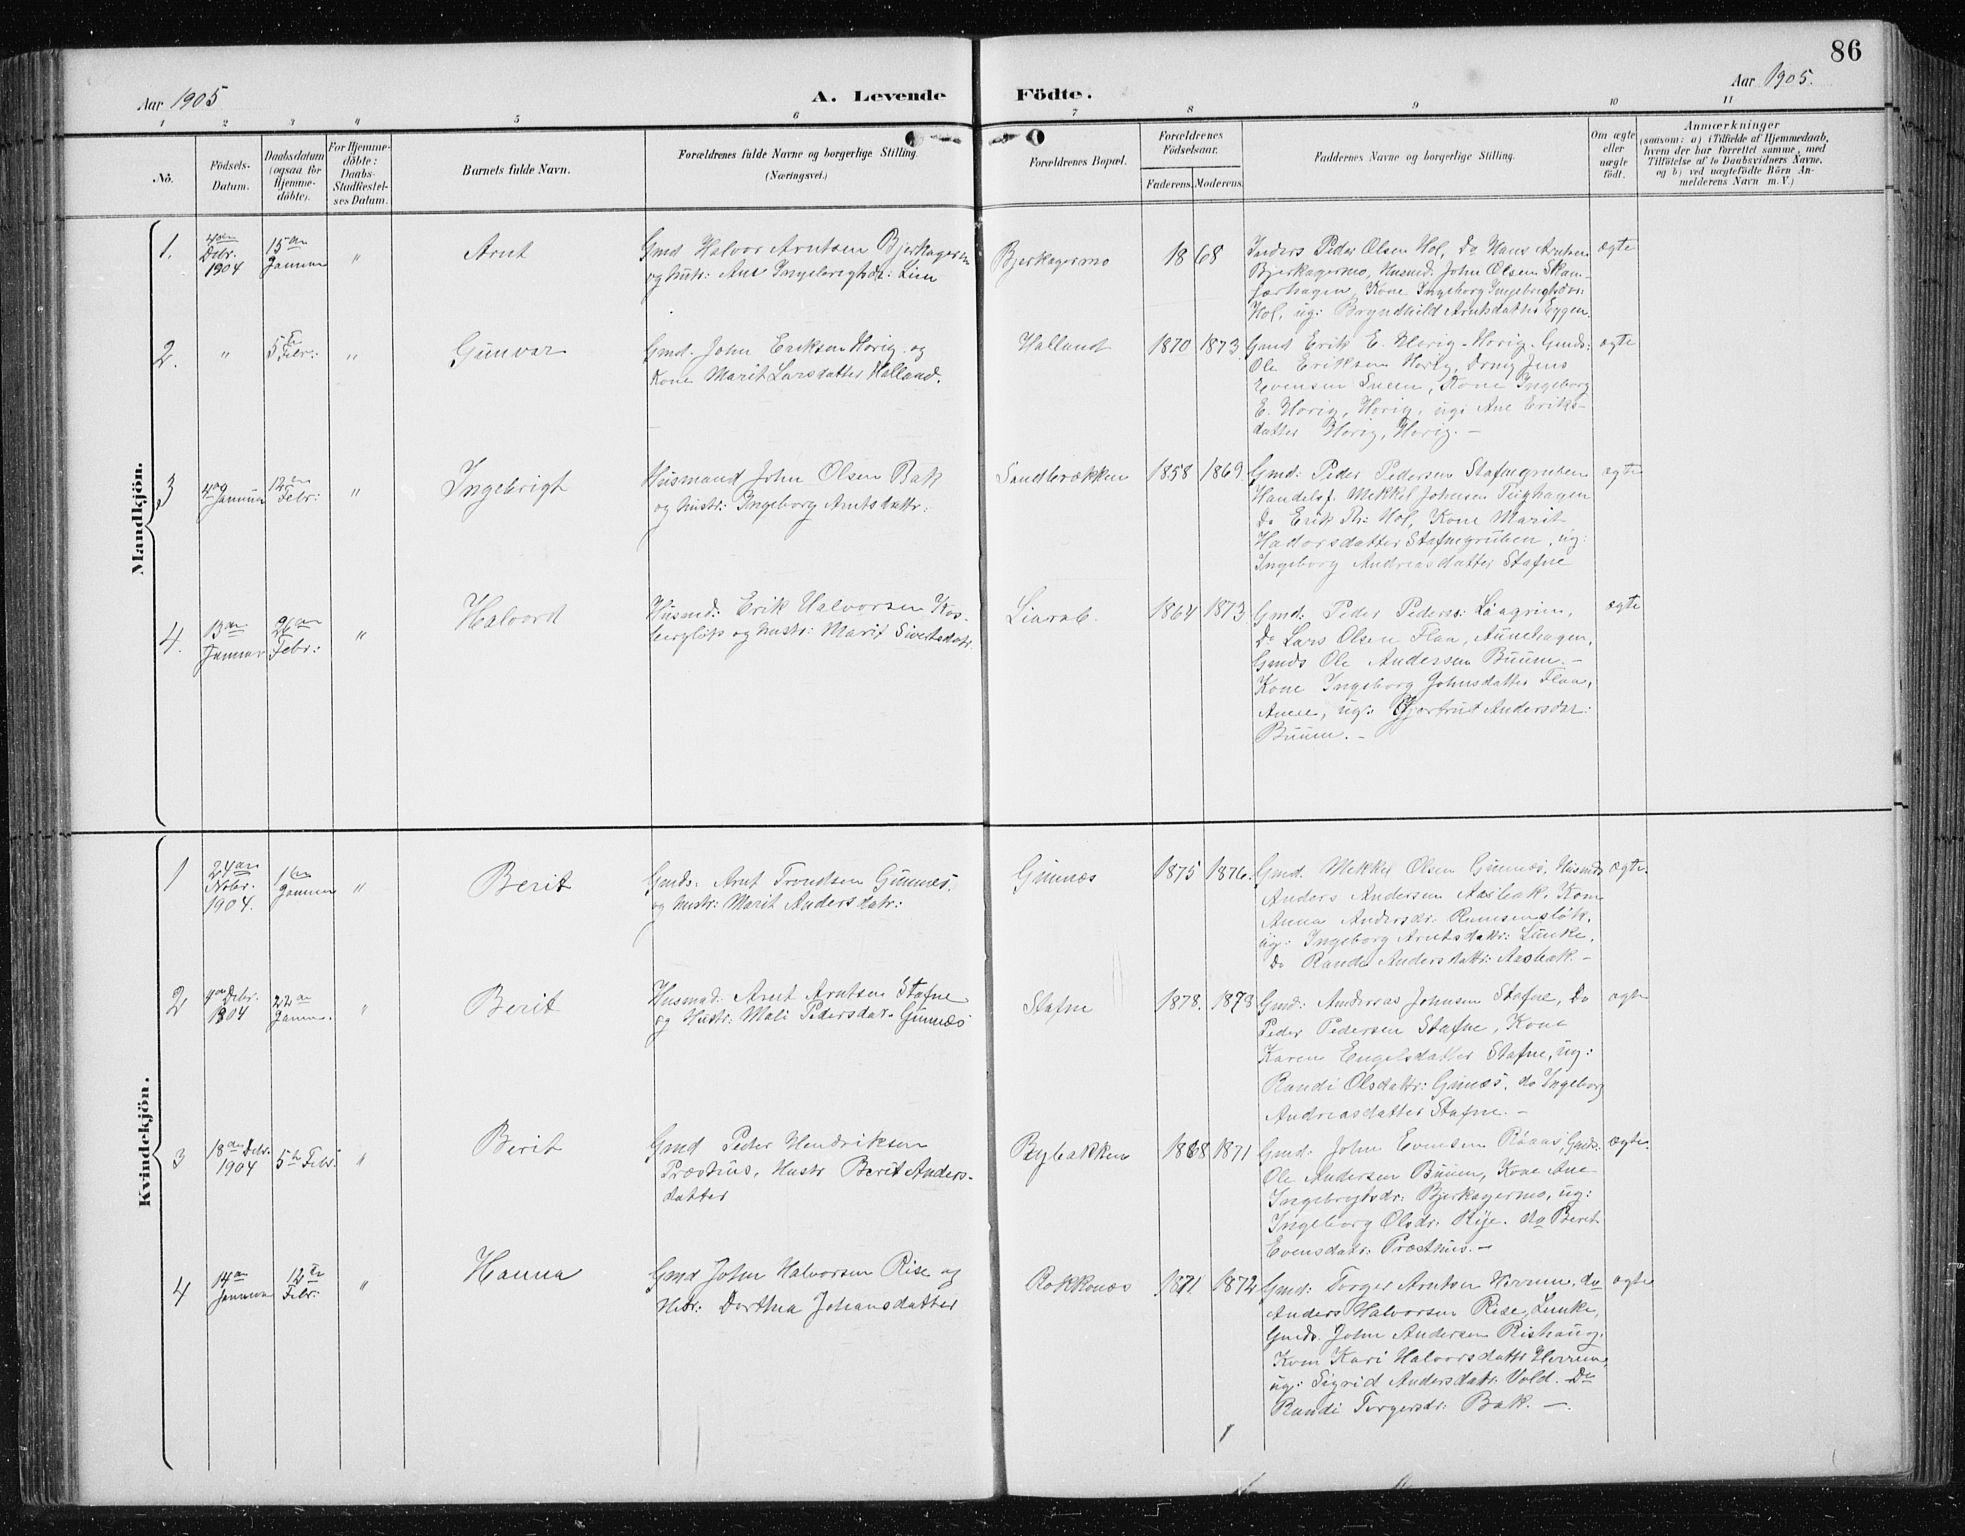 86
Aar 1905
A. Levende Födte.
Aar 1905.
1 2 3 4 5 6 7 8 9 10 11
No.
Födsels-
Datum.
Daabsdatum
(ogsaa for
Hjemme-
döbte).
For Hjemme-
döbte:
Daabs-
Stadfæstel-
ses Datum.
Barnets fulde Navn.
Forældrenes fulde Navne og borgerlige Stilling.
(Næringsvei.)
Forældrenes Bopæl.
Forældrenes
Födselsaar.
Faderens. Moderens.
Faddernes Navne og borgerlige Stilling.
Om ægte
eller
uægte
födt.
Anmærkninger
(saasom: a) i Tilfælde af Hjemmedaab,
hvem der har forrettet samme, med
Tilföielse af to Daabsvidners Navne,
og b) ved uægtefödte Börn An-
melderens Navn m. V.)
Mandkjön.
1.
Debr.
1904
15
Januar
"
Arnt
Gmd Halvor Arntsen Bjerkagermo
og hustr: Ane Ingebrigtsdt: Lien
Bjerkagermo
1868
Peder Olsen Hol, Do Hans Arntsen
Bjerkagermo, Husmd. John Olsen Skam-
Kone Ingeborg Ingebrigtsdtr:
Hol, ug: Bryndhild Arntsdatter Eggen
ægte
2.
"
5 Febr:
"
Gunvar
Gmd. John Eriksen Horig og
Kone Marit Larsdatter Halland.
Halland
1870 1873
Gmd Erik E. Horig-Horig. Gmds:
Ole Eriksen Horig, Drng Jens
Evensen Sneen, Kone Ingeborg
E. Horig, Horig, ug: Ane Eriks-
datter Horig, Horig. -
ægte
3
Januar
12 Febr:
"
Ingebrigt
Husmand John Olsen Bak
og hustr: Ingeborg Arntsdattr:
Sandbrækken
1858 1869.
Gmd: Peder Pedersen Stafnegruben
Handelsf. Mekkel Johnsen Tughagen
Do Erik Hol, Kone Marit
Hadorsdatter Stafnegruben, ug:
Ingeborg Andreasdatter Stafne
ægte
4.
13 Januar
26 Febr:
"
Halvord
Husmd: Erik Halvorsen Kos-
bergløk og hustr: Marit Sivertsdatr.
1864 1873
Gmd: Peder Peders:
Do Lars Olsen Flaa, Aunehagen,
Gmds Ole Andersen Buum. -
Kone Ingeborg Johnsdatter Flaa,
Aune, ug: Gjertrud Andersdatr:
Buum. -
ægte
Kvindekjön.
1
24
Nvbr.
1904.
1
Januar
"
Berit
Gmds: Arnt Trondsen Gunnes,
og hustr: Marit Andersdatr:
Gunnæs
1875 1876.
Gmd. Mekkel Olsen Gunnæs, Husmd
Anders Andersen Aasbak. Kone
Anna Andersdr: Rumsensløk.
ug: Ingeborg Arntsdattr: Lunke.
Do Randi Andersdattr: Aasbak. -
ægte
2
Debr.
1904
22
Januar.
"
Berit
Husmd: Arnt Arntsen Stafne
og Hustr: Mali Pedersdatr. Gunnæs
Stafne
1878. 1873
Gmd: Andreas Johnsen Stafne, Do
Peder Pedersen Stafne, Kone
Karen Engelsdatter Stafne, ug:
Randi Olsdattr: Gunæs, do Ingeborg
Andreasdatter Stafne. -
ægte
3
18 Debr.
1904
5 Febr.
"
Berit
Gmd Peter Hendriksen
Præsthus, Hustr Berit Anders-
datter
Rybakken
1868 1871
Gmd: John Evensen Røaas, Gmds:
Ole Andersen Buum, Kone Ane
Ingebrigtsdr: Bjerkagermo, ug:
Ingeborg Olsdr: Rije. do Beret
Evensdatr: Præsthus. -
ægte
4
14
Januar
12
Febr:
"
Hanna
Gmd John Halvorsen Rise og
Hstr: Dorthea Johansdatter
Rokkones
1871 1872
Gmd: Torger Arntsen Herrem, do
Anders Halvorsen Rise, Lunke,
Gmds. John Andersen Rishaug.
Kone Kari Halvorsdattr Herrem,
ug: Sigrid Andersdatr. Vold. Do
Randi Torgersdr: Bak. -
ægte